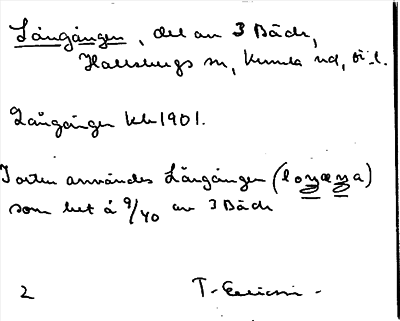 Långången, del av 3 Bäck,
Hallsbergs sn, Kumla hd, Ör. l.
Långången kb 1901.
I orten användes Långången (loŋæŋa)
som bet å 9/40 av 3 Bäck
2 T. Ericsson